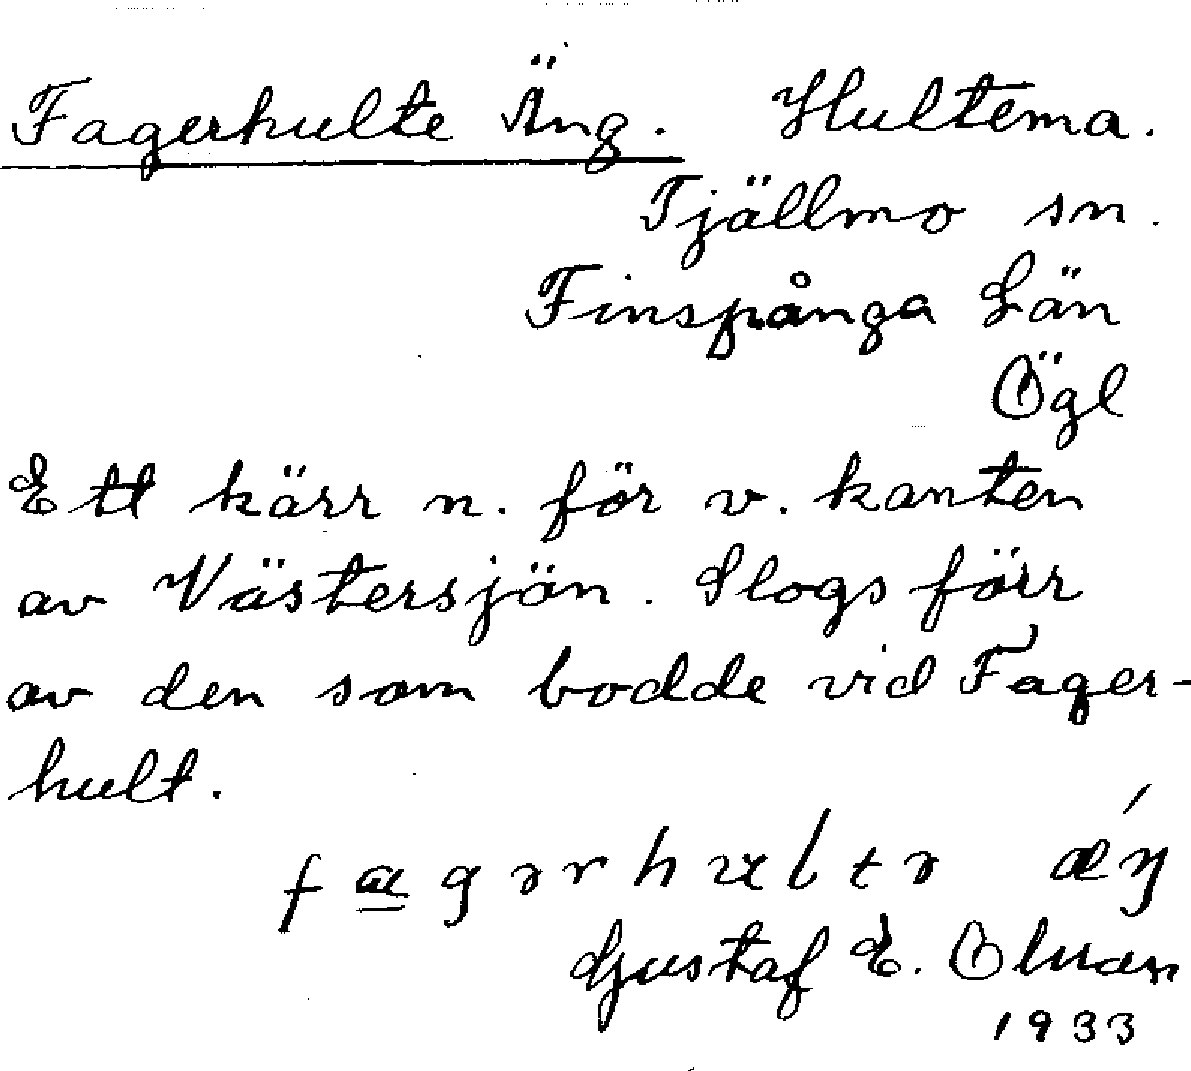 Fagerhulte Äng. Hultema.
Tjällmo sn.
Finspånga Län
Ögl
Ett kärr n. för v. kanten
av Västersjön. Slogs förr
av den som bodde vid Fager-
hult.
Gustaf E.
1933